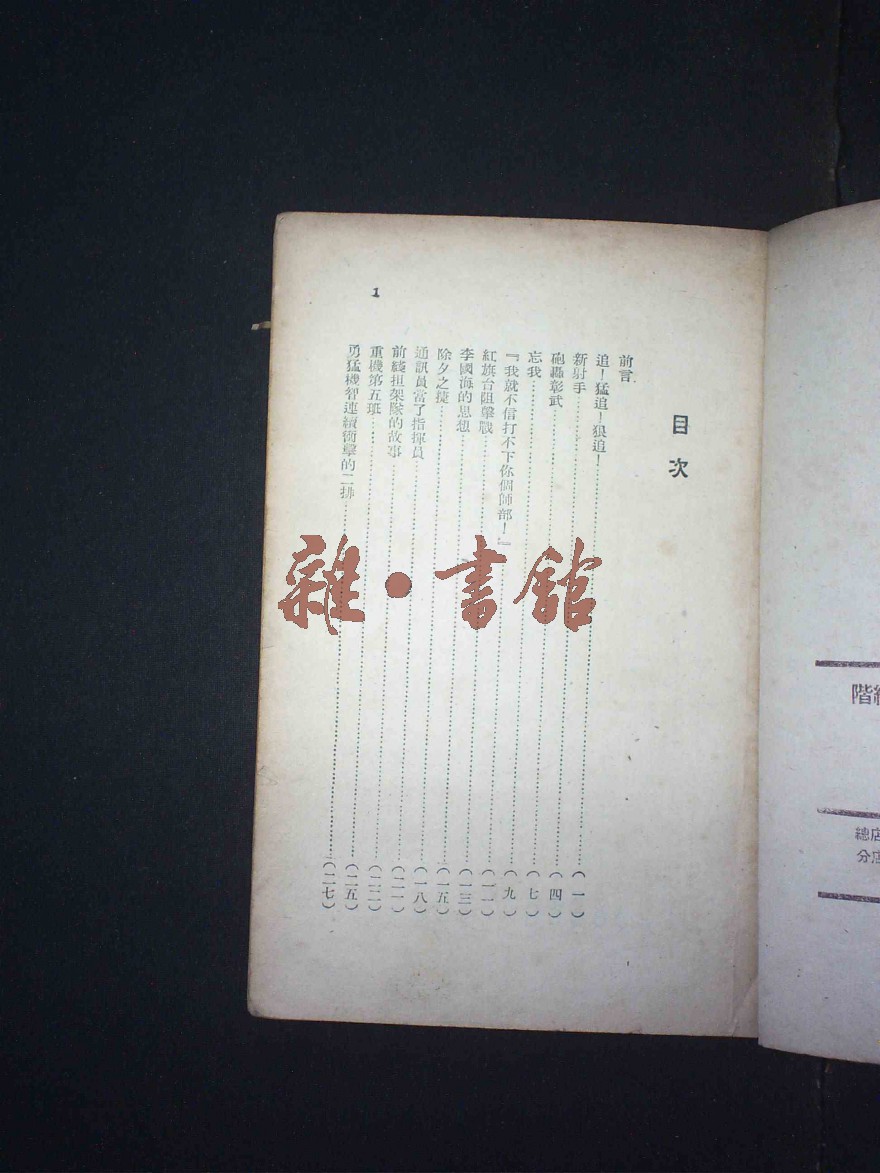 階
總店
分店
目次
前言
追！猛追！狠追！……(一)
新射手……(四)
砲轟彰武……(七)
忘我……(九)
『我就不信打不下你個師部！』……(一一)
紅旗台阻擊戰……(一三)
李國海的思想……(一五)
除夕之捷……(一八)
通訊員當了指揮員……(二一)
前綫担架隊的故事……(二二)
重機第五班……(二五)
勇猛機智連續衝擊的二排……(二七)
1
雜·書館